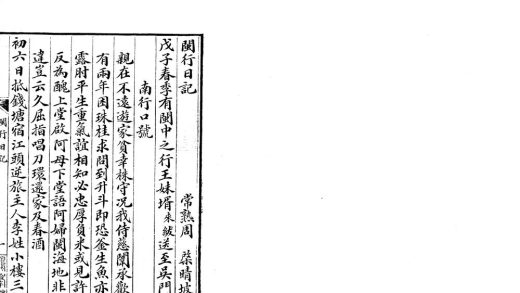 閩行日記
常熟周
蓉晴坡
戊子春季有閩中之行王妹壻來誠送至吳門
南行口號
親在不遠遊家貧幸株守况我侍慈闈承歡
有兩年困珠桂求問到升斗即恐釜生魚亦
露肘平生重氣誼相知必忠厚負米或見許
反為醜上堂啟阿母下堂語阿婦閩海地非
遠豈云久屈指唱刀環還家及春酒
初六日抵錢塘宿江頭逆旅主人李姓小樓三
閩行日記
一